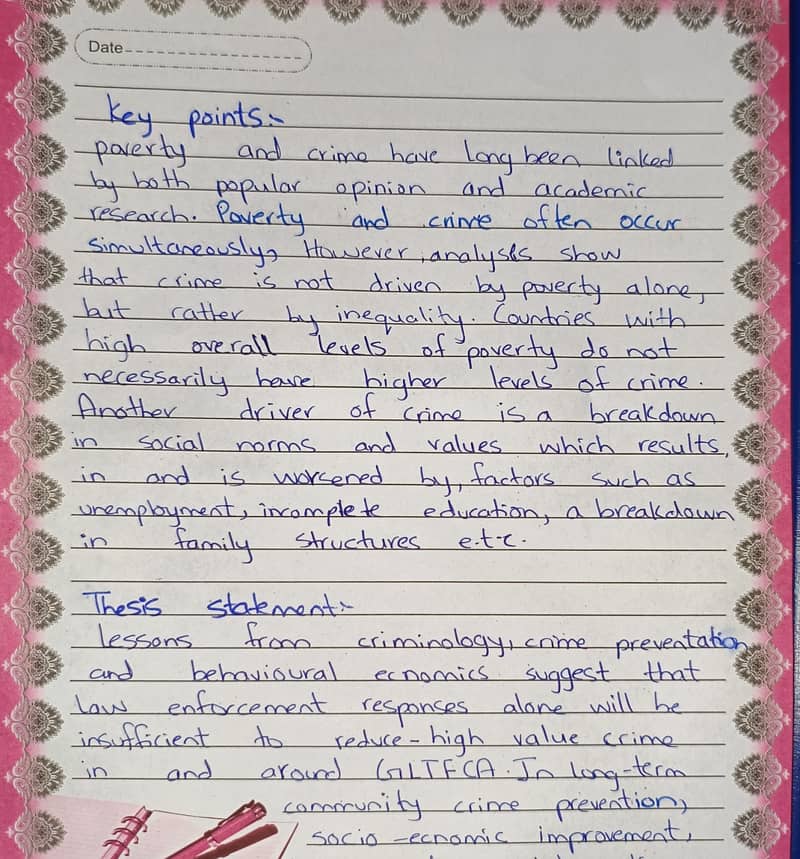 Date
Key points:-
poverty and crime have long been linked
by both popular opinion and academic
research. Poverty and crime often occur
simultaneously, However, analyses show
that crime is not driven by poverty alone,
but rather by inequality. Countries with
high overall levels of poverty do not
necessarily have higher levels of crime.
Another driver of crime is a breakdown
in social norms and values which results,
in and is worsened by, factors such as
unemployment, incomplete education, a breakdown
in family structures e.t.c.
Thesis statement:-
lessons from criminology, crime preventation
and behavioural ecnomics suggest that
law enforcement responses alone will be
insufficient to reduce-high value crime
in and around GLTFCA. In long-term
community crime prevention,
socio-ecnomic improvement,